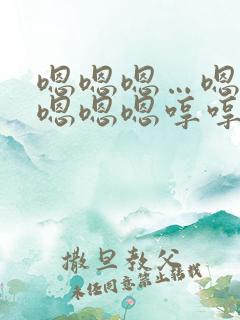 嗯嗯嗯…嗯
嗯嗯嗯哼哼
撒旦教父
未经同意禁止转载